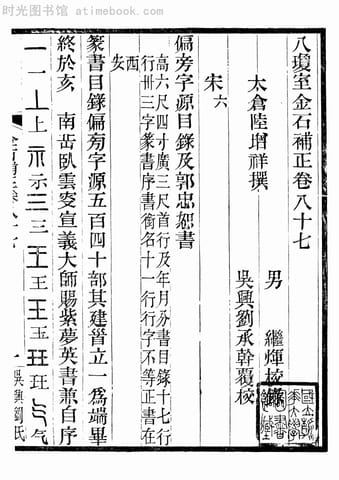 时光图书馆 atimebook.com
八瓊室金石補正卷八十七
太倉陸增祥撰
男 繼煇校錄
吳興劉承幹覆校
宋六
偏旁字源目錄及郭忠恕書
高六尺四寸廣三尺首行及年月分書目錄十七行
行卅三字篆書序書銜名十一行行字不等正書在
西
安
篆書目錄偏旁字源五百四十部其建首立一爲端畢
終於亥 南岳臥雲叜宣義大師賜紫夢英書兼自序
一一丄上示示三三王王玉玉玨玨气气
八十七
一 吳興劉氏